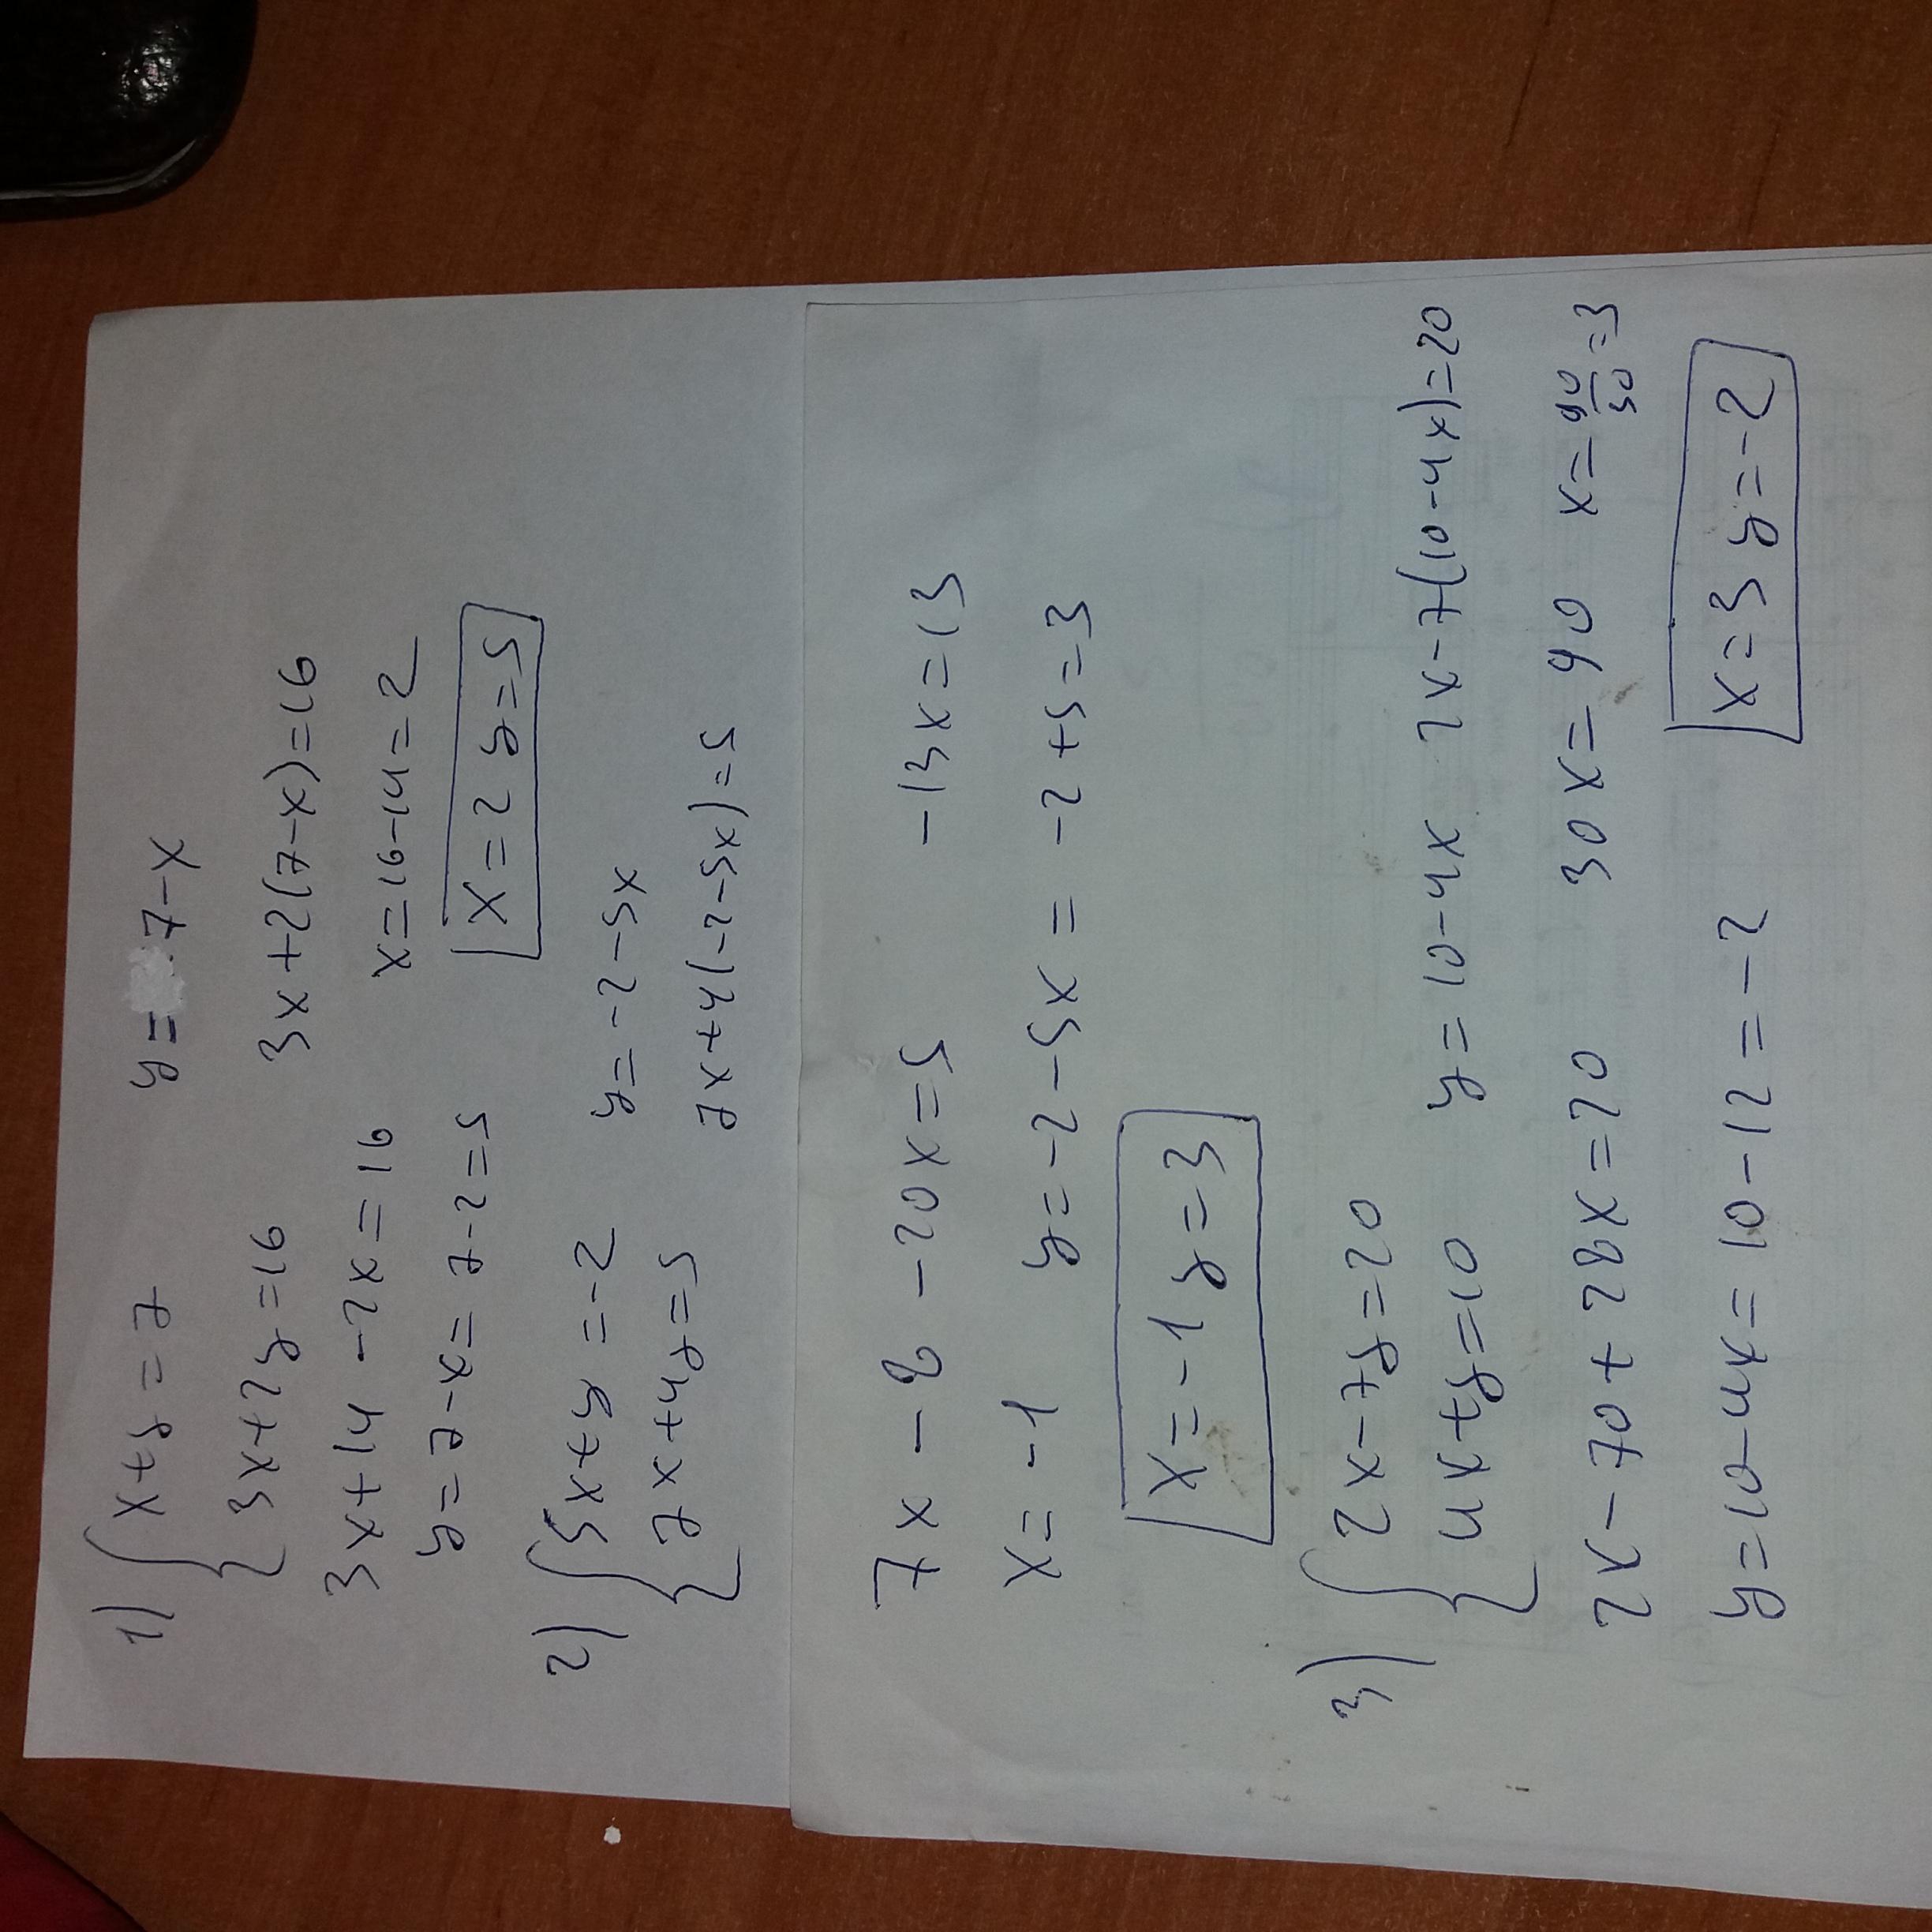 1) { x+y=7   y=7-x
3x+2y=16   3x+2(7-x)=16
3x+14-2x=16   x=16-14=2
y=7-x=7-2=5   x=2 y=5
2) { 5x+y=-2   y=-2-5x
7x+4y=5   7x+4(-2-5x)=5
7x-8-20x=5   -13x=13
x=-1   y=-2-5x=-2+5=3
x=-1 y=3
3) { 2x-7y=20
4x+y=10   y=10-4x   2x-7(10-4x)=20
2x-70+28x=20   30x=90   x=90/30=3
y=10-4x=10-12=-2   x=3 y=-2